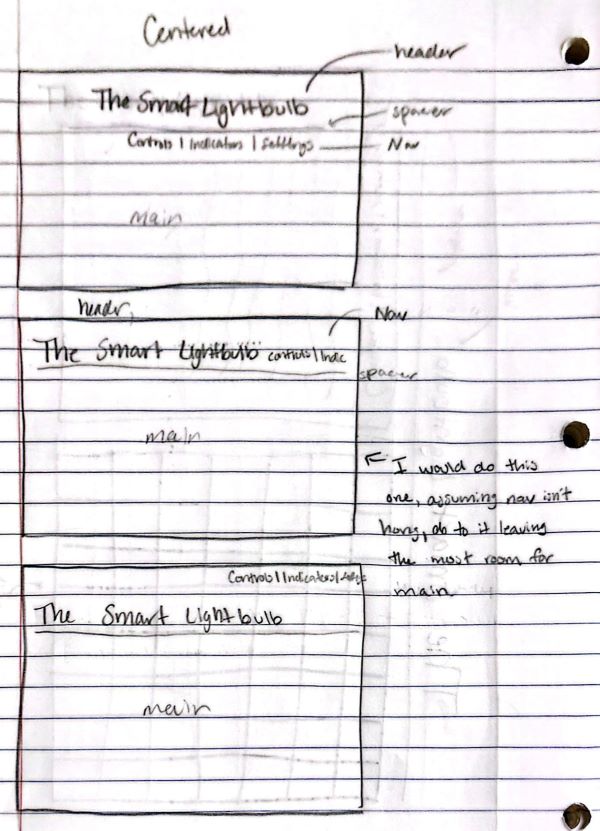 Centered
header
The Smart Lightbulb
spacer
Controls | Indicators | Settings
Nav
main
header
Nav
The Smart Lightbulb controls | Indic
spacer
main
I would do this
one, assuming nav isn't
long, do to it leaving
the most room for
main
Controls | Indicators |
The Smart Lightbulb
main